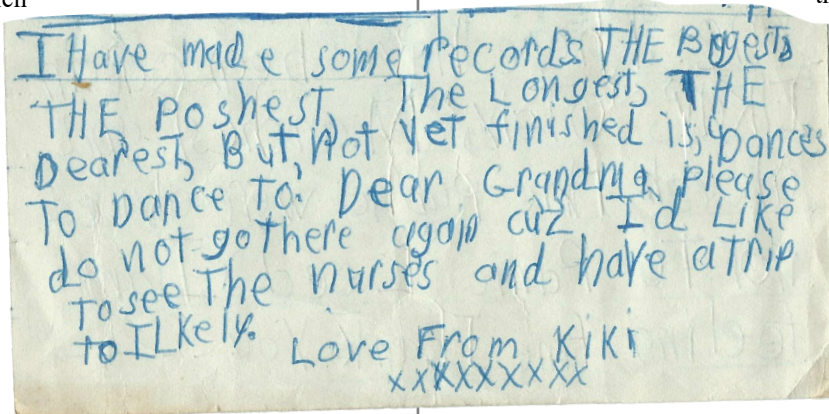 I Have made some records THE Biggest,
THE Poshest, The Longest, THE
Dearest, But, Not Yet finished is, "Dances
To Dance To." Dear Grandma, please
do not go there again cuz I'd Like
To see The nurses and have a trip
to ILkely.
Love From Kiki
xxxxxxxxx